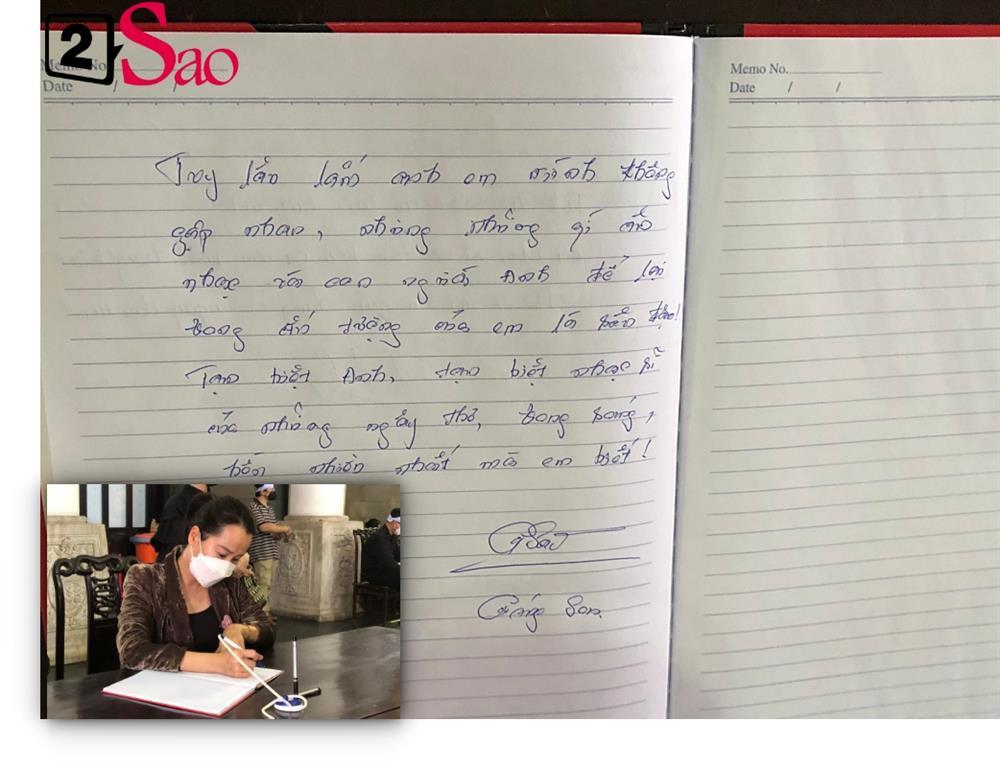 2 Sao
Memo No.
Date / /
Memo No.
Date / /
Tuy lần lắm anh em mình không
gặp nhau, nhưng những gì âm
nhạc và con người Anh để lại
trong ấn tượng của em là rất đậm!
Tạm biệt Anh, tạm biệt nhạc sĩ
của những ngây thơ, trong sáng,
hồn nhiên nhất mà em biết!
Giáng Son